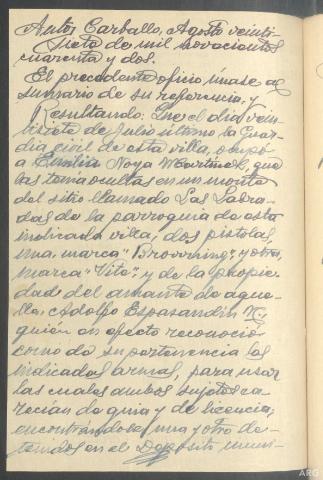 Auto, Carballo, Agosto veinti-
siete de mil novecientos
cuarenta y dos.
El precedente oficio únase al
sumario de su referencia; y
Resultando: Que el dia vein-
tisiete de Julio último la Guar-
dia civil de esta villa, ocupó
a Emilia Noya Martinez, que
las tenia ocultas en un monte
del sitio llamado Las Labra-
das de la parroquia de esta
indicada villa; dos pistolas,
una, marca "Browning", y otra,
marca "Vite", y de la propie-
dad del amante de aque-
lla, Adolfo Espasandin
quien en efecto reconoció
como de su pertenencia las
indicadas armas, para usar
las cuales ambos sujetos ca-
recian de guia y de licencia;
encontrándose una y otro de-
tenidos en el Depósito muni-
ARG